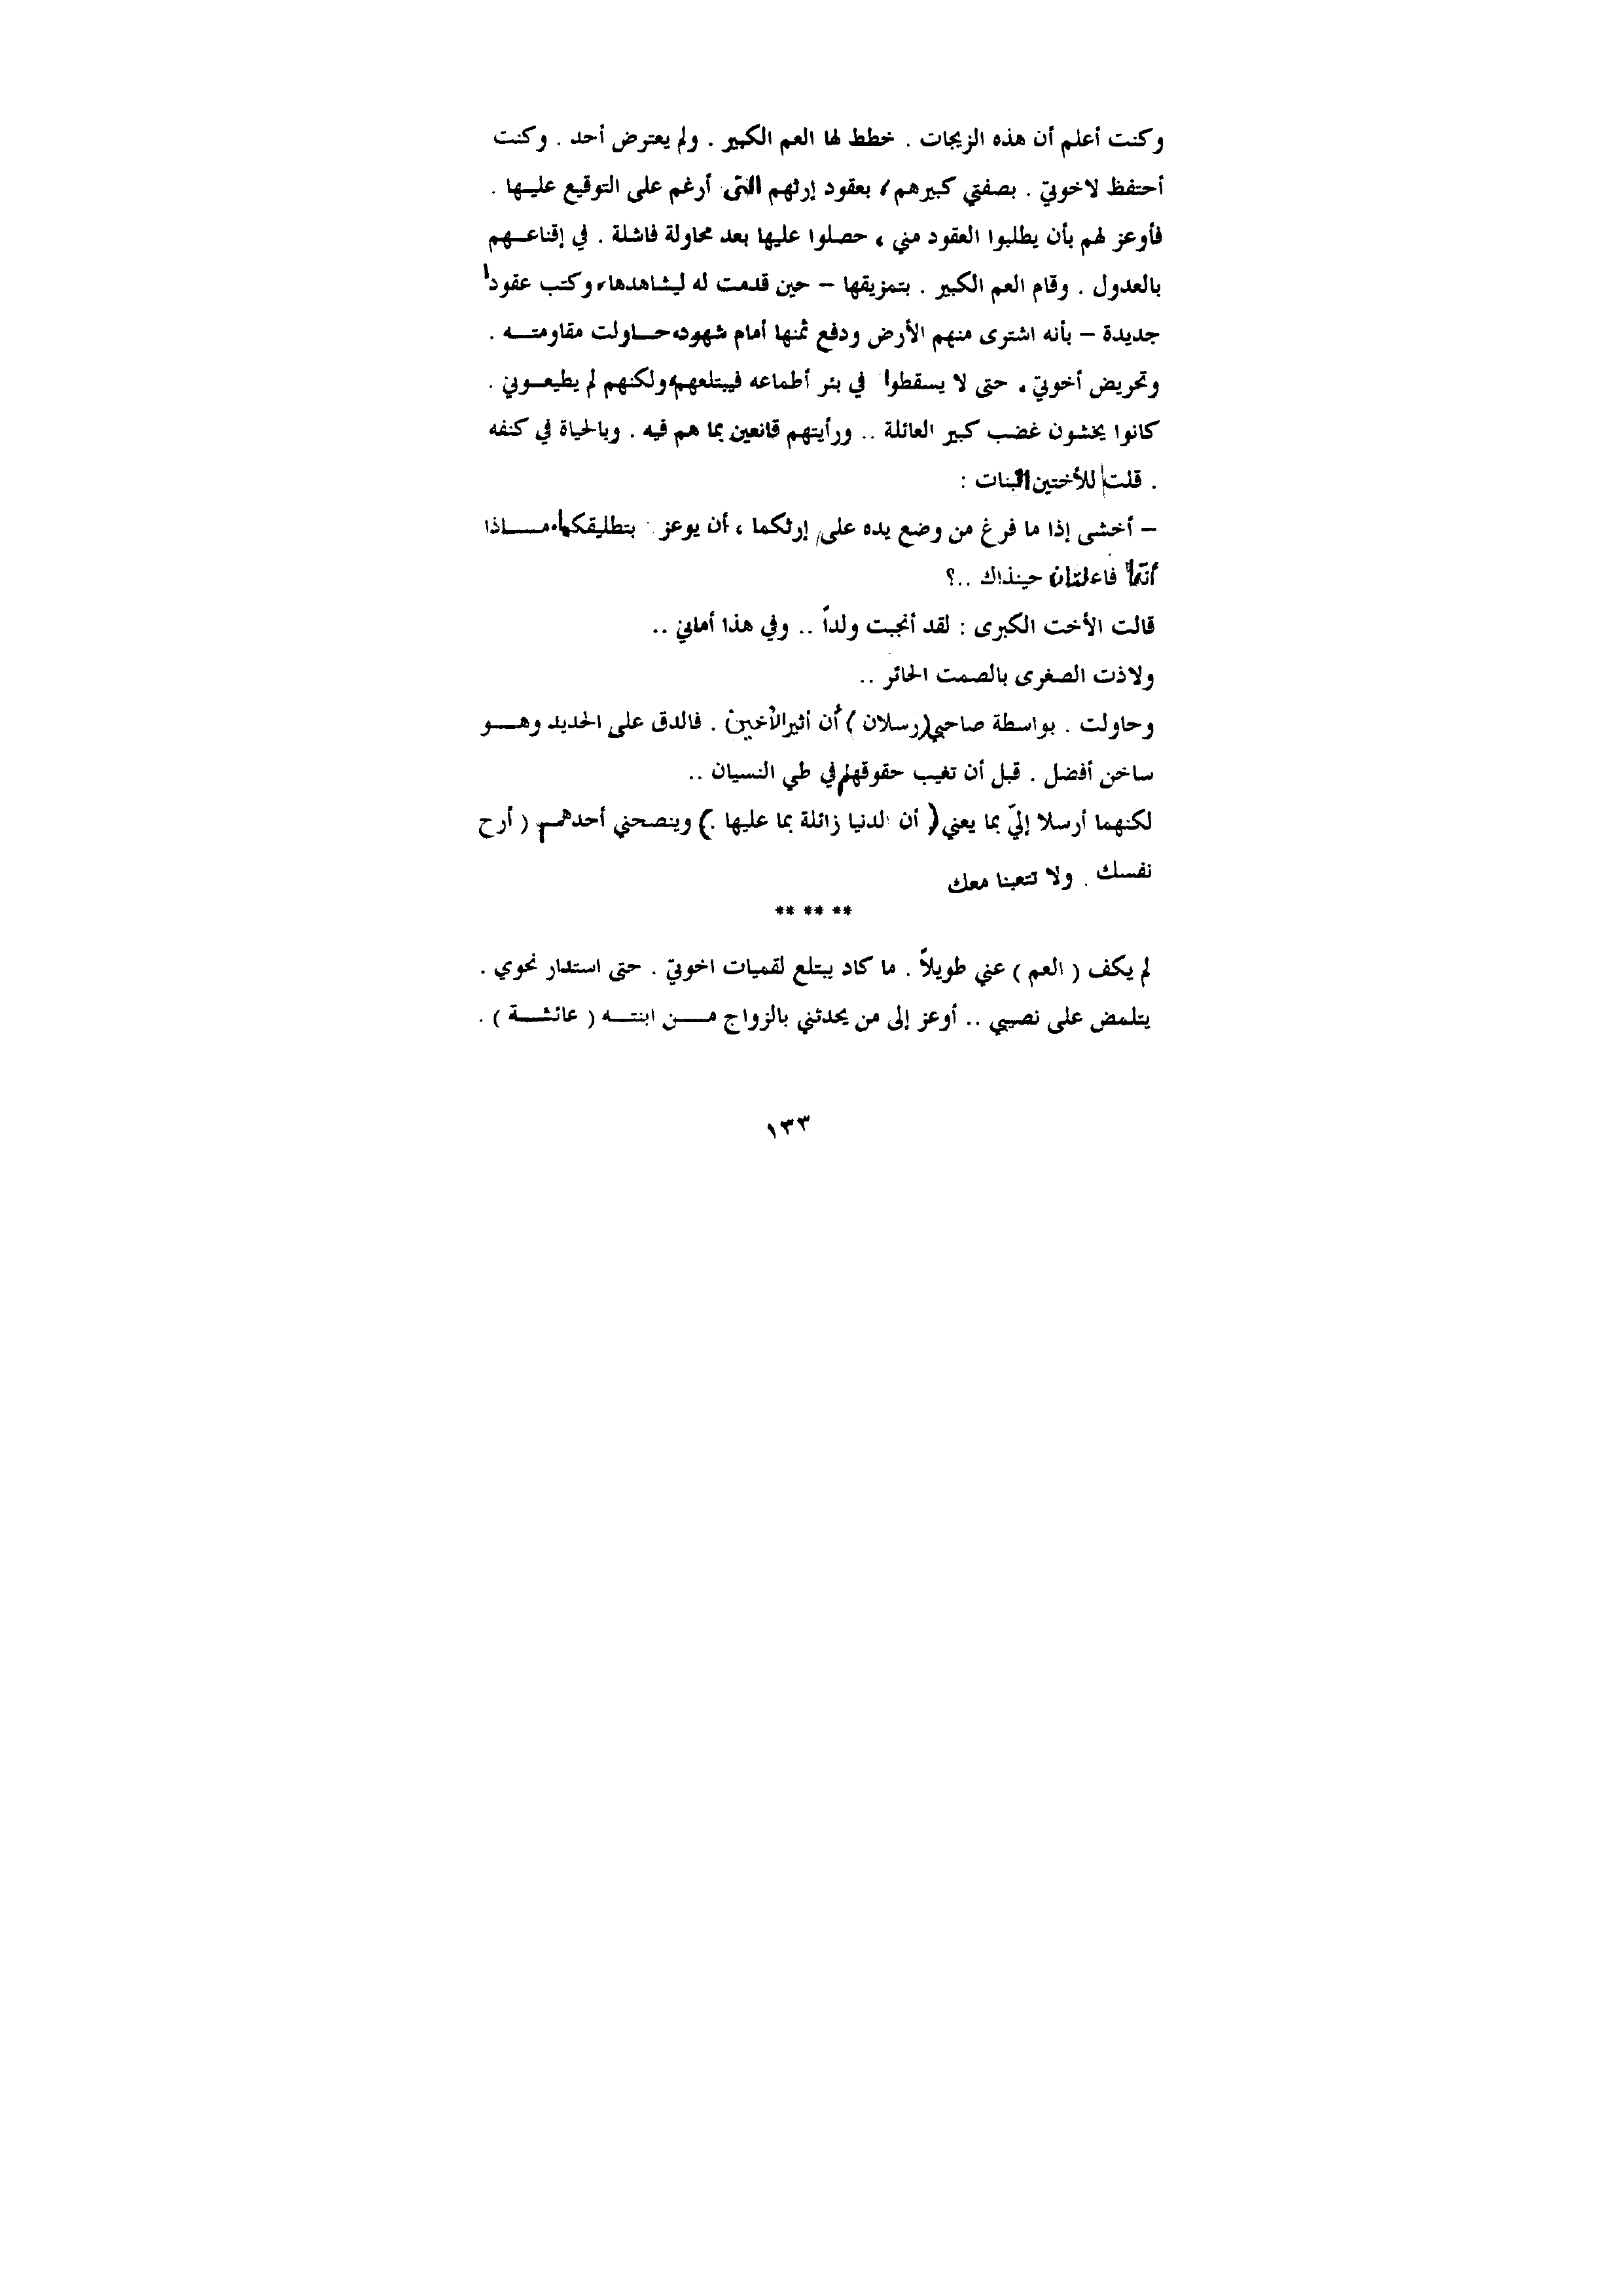 وكنت أعلم أن هذه الزيجات . خطط لها العم الكبير . ولم يعترض أحد . وكنت
أحتفظ لاخوتي . بصفتي كبيرهم ، بعقود إرثهم التى أرغم على التوقيع عليها .
فأوعز لهم بأن يطلبوا العقود مني ، حصلوا عليها بعد محاولة فاشلة . في إقناعهم
بالعدول . وقام العم الكبير . بتمزيقها – حين قدمت له ليشاهدها، وكتب عقودا
جديدة – بأنه اشترى منهم الأرض ودفع ثمنها أمام شهود، حاولت مقاومته .
وتحريض أخوتي ، حتى لا يسقطوا في بئر أطماعه فيبتلعهم، ولكنهم لم يطيعوني .
كانوا يخشون غضب كبير العائلة .. ورأيتهم قانعين بما هم فيه . وبالحياة في كنفه
. قلت للأختين البنات :
– أخشى إذا ما فرغ من وضع يده على إرثكما ، أن يوعز بتطليقكما، ماذا
أنتما فاعلتان حينذاك ..؟
قالت الأخت الكبرى : لقد أنجبت ولداً .. وفي هذا أماني ..
ولاذت الصغرى بالصمت الحائر ..
وحاولت . بواسطة صاحبي (رسلان ) أن أثير الأخين . فالدق على الحديد وهو
ساخن أفضل . قبل أن تغيب حقوقهم في طي النسيان ..
لكنهما أرسلا إليّ بما يعني ( أن الدنيا زائلة بما عليها .) وينصحني أحدهم ( أرح
نفسك . ولا تتعبنا معك
** ** **
لم يكف ( العم ) عني طويلاً . ما كاد يبتلع لقميات اخوتي . حتى استدار نحوي .
يتلمض على نصيبي .. أوعز إلى من يحدثني بالزواج من ابنته ( عائشة ) .
١٣٣